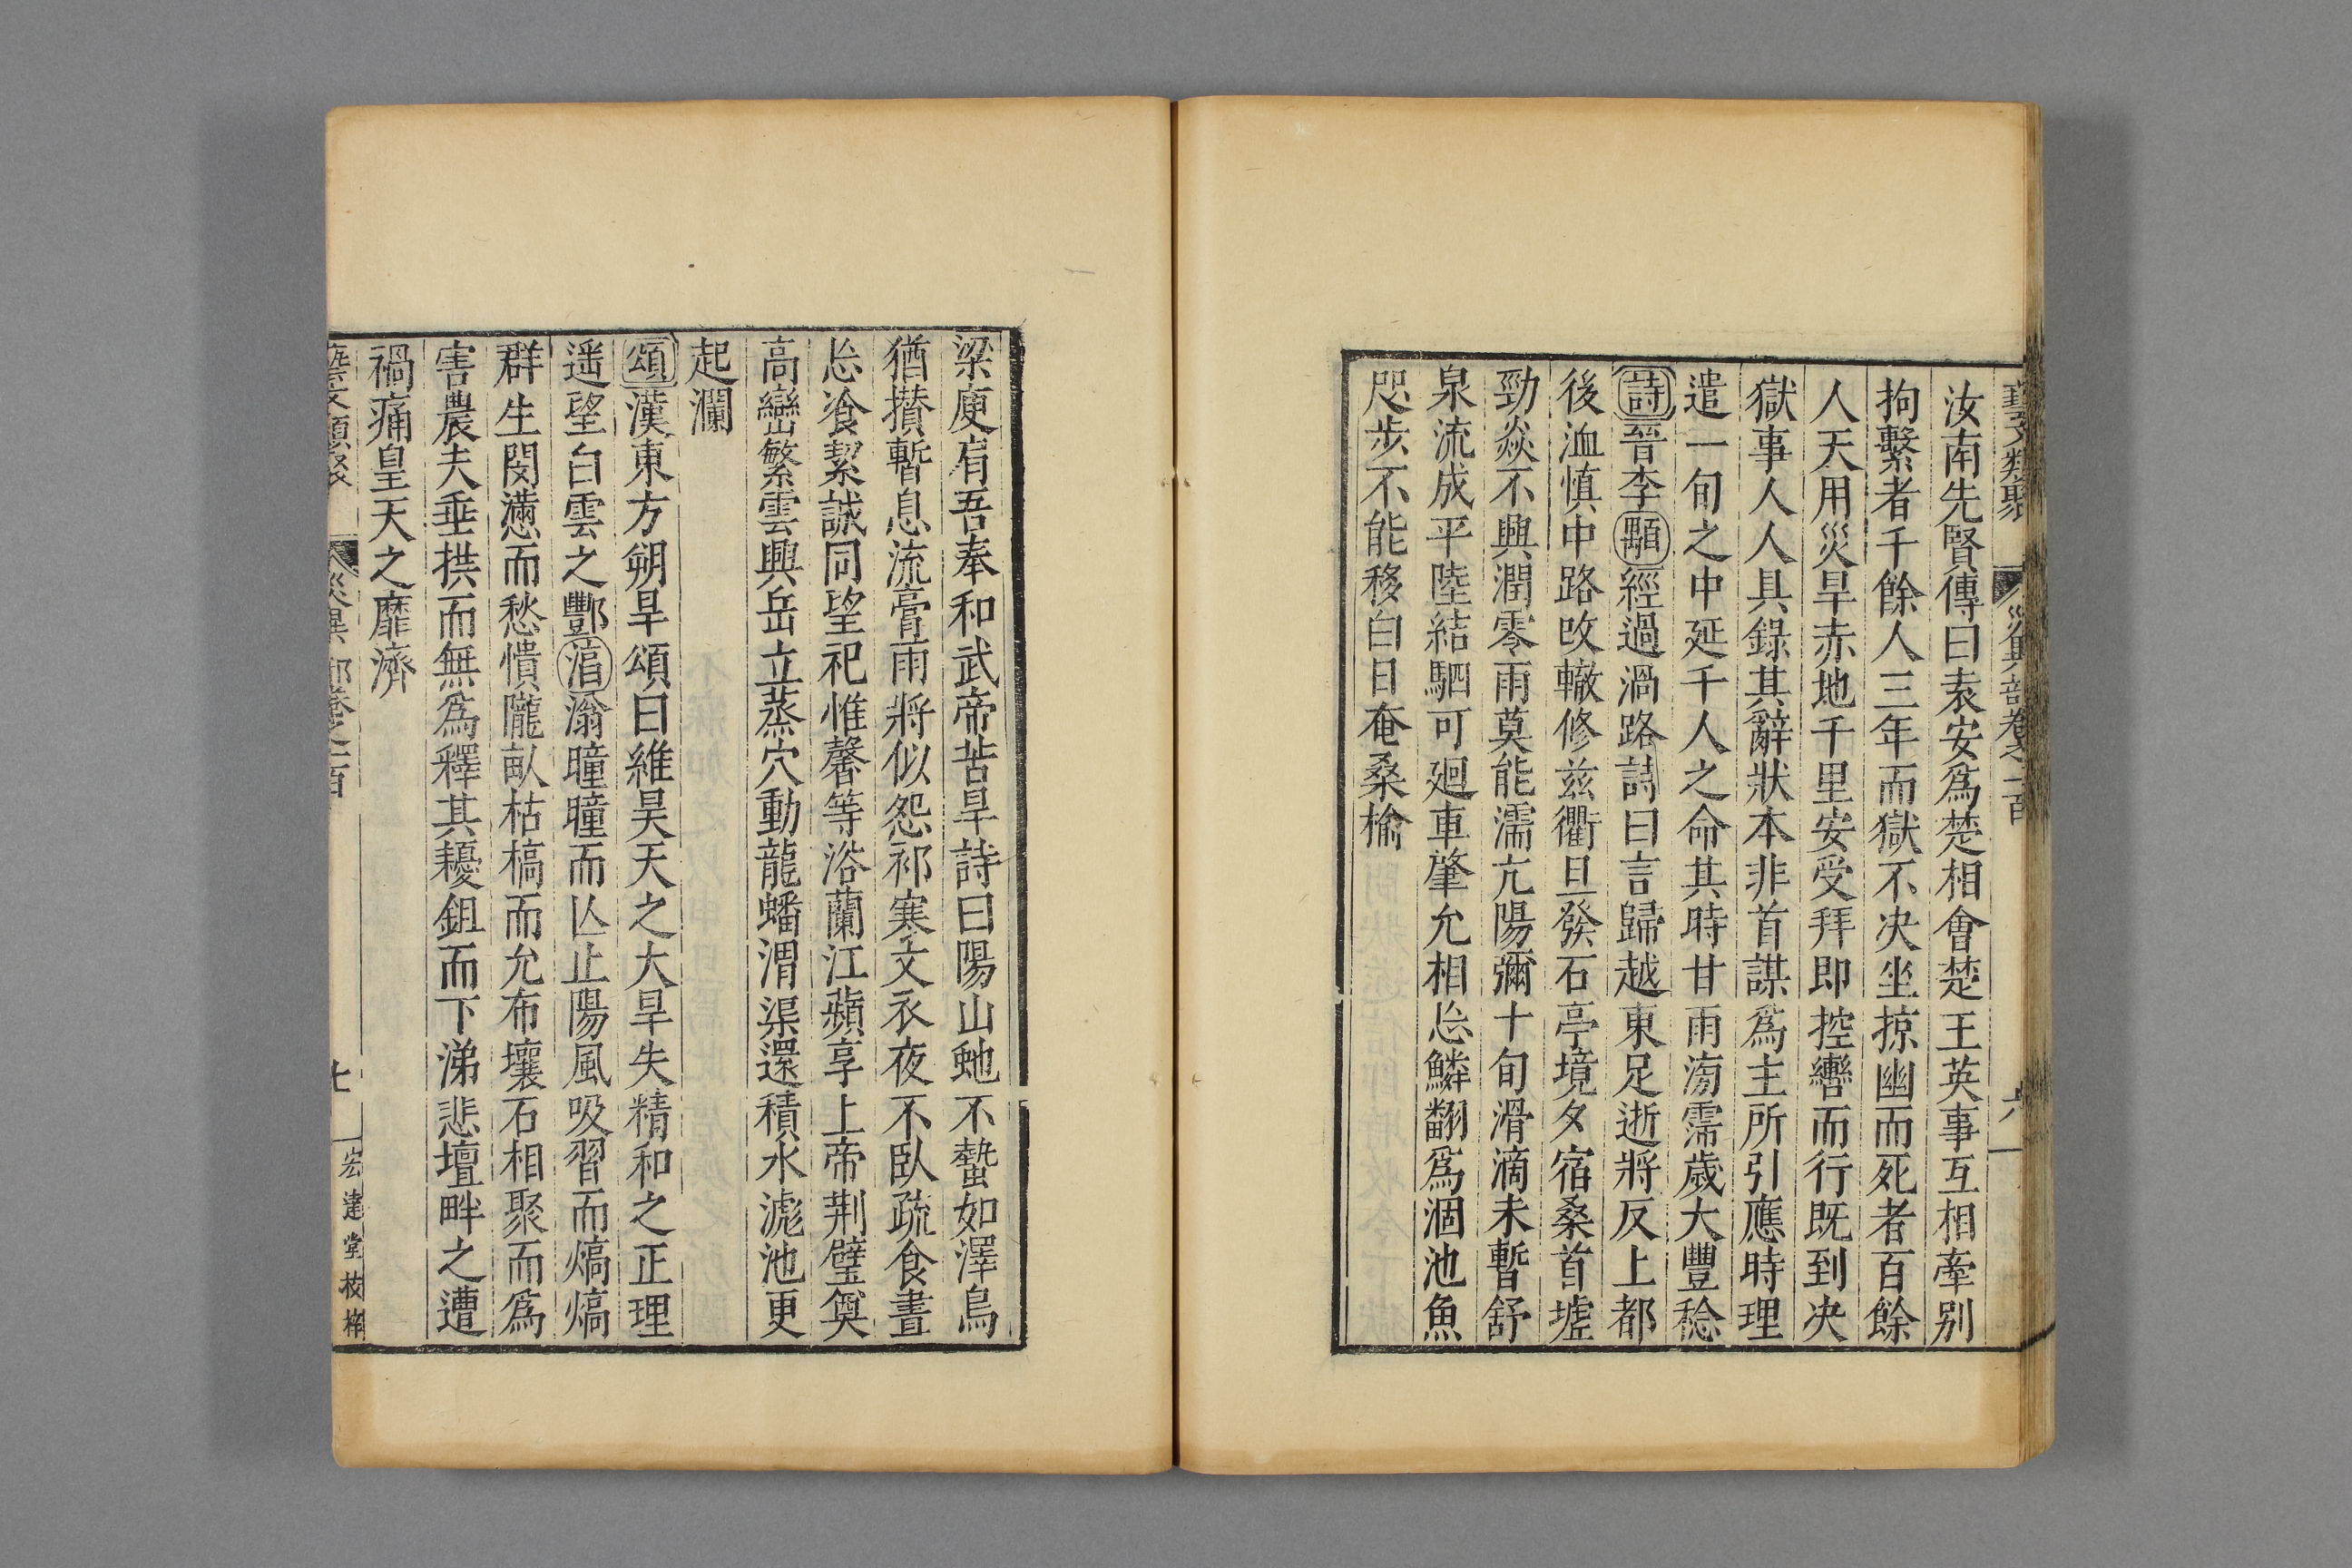 藝文類聚 災異部卷之一百 六
汝南先賢傳曰袁安爲楚相會楚王英事互相牽別
拘繫者千餘人三年而獄不决坐掠幽而死者百餘
人天用災旱赤地千里安受拜即控轡而行既到决
獄事人人具錄其辭狀本非首謀爲主所引應時理
遣一旬之中延千人之命其時甘雨滂霈歲大豐稔
詩晉李顒經過渦路詩曰言歸越東足逝將反上都
後洫慎中路改轍修兹衢旦發石亭境夕宿桑首墟
勁焱不興潤零雨莫能濡亢陽彌十旬滑滴未暫舒
泉流成平陸結駟可廻車肇允相㤀鱗翻爲涸池魚
咫步不能移白日奄桑榆
梁庾肩吾奉和武帝苦旱詩曰陽山虵不蟄如澤鳥
猶攢暫息流膏雨將似怨祁寒文衣夜不臥疏食晝
㤀飡絜誠同望祀惟馨等浴蘭江蘋享上帝荆璧奠
高巒繁雲興岳立蒸穴動龍蟠渭渠還積水滮池更
起瀾
頌漢東方朔旱頌曰維昊天之大旱失精和之正理
遥望白雲之酆滀滃曈曈而亾止陽風吸習而熇熇
群生閔懣而愁憒隴畝枯槁而允布壤石相聚而爲
害農夫垂拱而無爲釋其耰鉏而下涕悲壇畔之遭
禍痛皇天之靡濟
藝文類聚 災異部卷之一百 七 宏達堂校槧